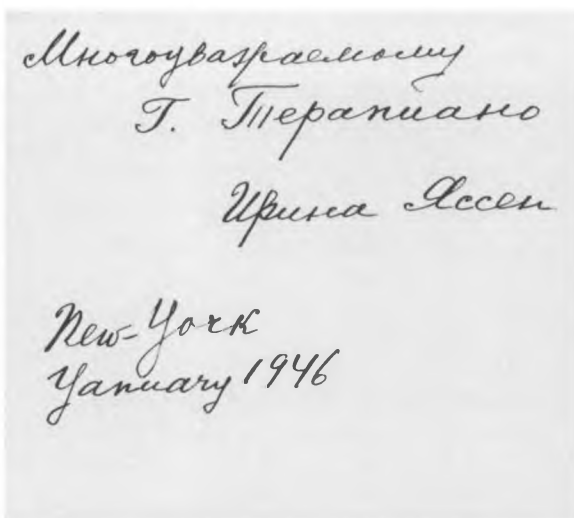 Многоуважаемому
Г. Терапиано
Ирина Яссен
New-York
January 1946